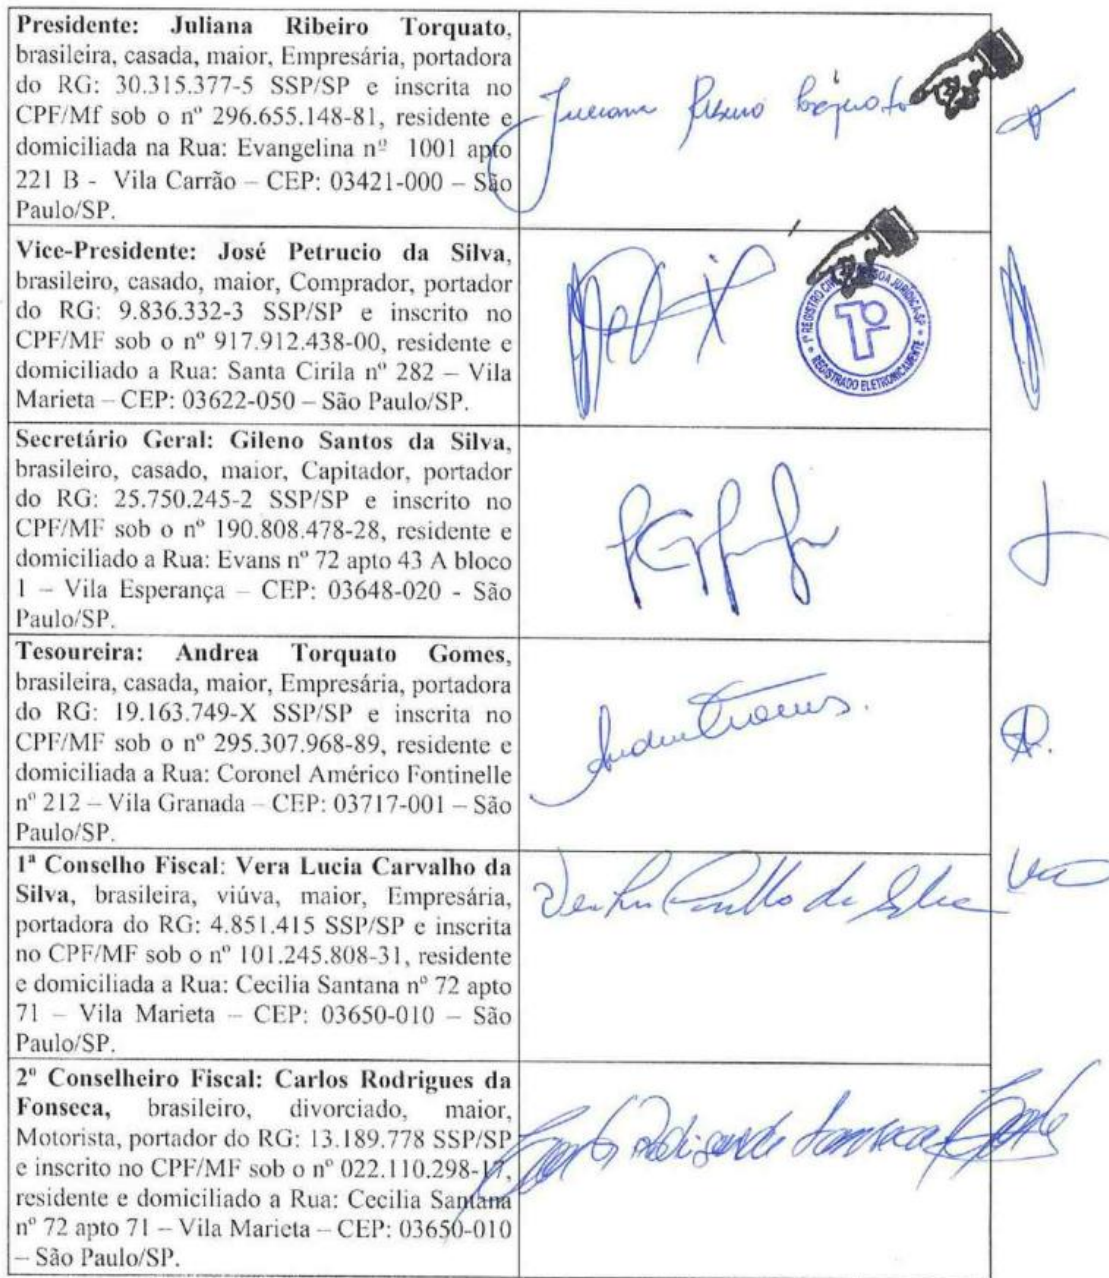 Presidente: Juliana Ribeiro Torquato,
brasileira, casada, maior, Empresária, portadora
do RG: 30.315.377-5 SSP/SP e inscrita no
CPF/Mf sob o nº 296.655.148-81, residente e
domiciliada na Rua: Evangelina nº 1001 apto
221 B - Vila Carrão – CEP: 03421-000 – São
Paulo/SP.
Vice-Presidente: José Petrucio da Silva,
brasileiro, casado, maior, Comprador, portador
do RG: 9.836.332-3 SSP/SP e inscrito no
CPF/MF sob o nº 917.912.438-00, residente e
domiciliado a Rua: Santa Cirila nº 282 – Vila
Marieta – CEP: 03622-050 – São Paulo/SP.
1º
REGISTRADO ELETRONICAMENTE
Secretário Geral: Gileno Santos da Silva,
brasileiro, casado, maior, Capitador, portador
do RG: 25.750.245-2 SSP/SP e inscrito no
CPF/MF sob o nº 190.808.478-28, residente e
domiciliado a Rua: Evans nº 72 apto 43 A bloco
1 – Vila Esperança – CEP: 03648-020 - São
Paulo/SP.
Tesoureira: Andrea Torquato Gomes,
brasileira, casada, maior, Empresária, portadora
do RG: 19.163.749-X SSP/SP e inscrita no
CPF/MF sob o nº 295.307.968-89, residente e
domiciliada a Rua: Coronel Américo Fontinelle
nº 212 – Vila Granada – CEP: 03717-001 – São
Paulo/SP.
1ª Conselho Fiscal: Vera Lucia Carvalho da
Silva, brasileira, viúva, maior, Empresária,
portadora do RG: 4.851.415 SSP/SP e inscrita
no CPF/MF sob o nº 101.245.808-31, residente
e domiciliada a Rua: Cecilia Santana nº 72 apto
71 – Vila Marieta – CEP: 03650-010 – São
Paulo/SP.
2º Conselheiro Fiscal: Carlos Rodrigues da
Fonseca, brasileiro, divorciado, maior,
Motorista, portador do RG: 13.189.778 SSP/SP
e inscrito no CPF/MF sob o nº 022.110.298-17,
residente e domiciliado a Rua: Cecilia Santana
nº 72 apto 71 – Vila Marieta – CEP: 03650-010
– São Paulo/SP.